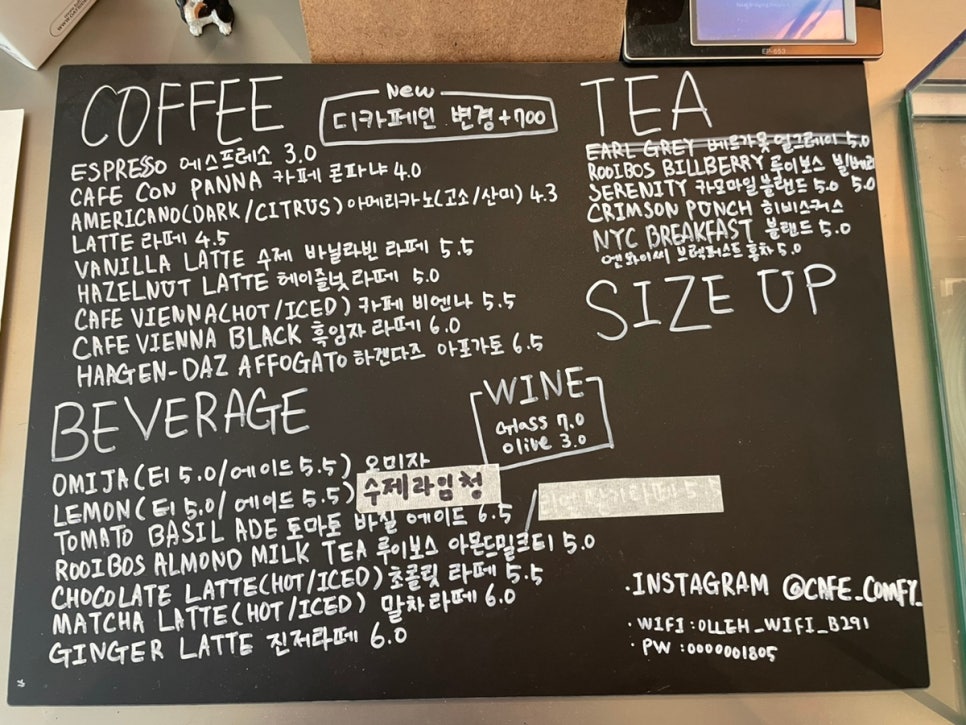 COFFEE
New
디카페인 변경+700
ESPRESSO 에스프레소 3.0
CAFE CON PANNA 카페 콘파냐 4.0
AMERICANO(DARK/CITRUS)아메리카노(고소/산미) 4.3
LATTE 라떼 4.5
VANILLA LATTE 수제 바닐라빈 라떼 5.5
HAZELNUT LATTE 헤이즐넛 라떼 5.0
CAFE VIENNA(HOT/ICED) 카페 비엔나 5.5
CAFE VIENNA BLACK 흑임자 라떼 6.0
HAAGEN-DAZ AFFOGATO 하겐다즈 아포가토 6.5
TEA
EARL GREY 베르가못 얼그레이 5.0
ROOIBOS BILLBERRY 루이보스 빌베리
SERENITY 카모마일 블랜드 5.0 5.0
CRIMSON PUNCH 히비스커스
NYC BREAKFAST 블랜드 5.0
엔와이씨 브렉퍼스트 홍차 5.0
SIZE UP
BEVERAGE
OMIJA(티 5.0/에이드 5.5) 오미자
LEMON(티 5.0/ 에이드 5.5) 수제라임청
TOMATO BASIL ADE 토마토 바질 에이드 6.5 /
ROOIBOS ALMOND MILK TEA 루이보스 아몬드밀크티 5.0
CHOCOLATE LATTE(HOT/ICED) 초콜릿 라떼 5.5
MATCHA LATTE(HOT/ICED) 말차라떼 6.0
GINGER LATTE 진저라떼 6.0
WINE
Glass 7.0
Olive 3.0
·INSTAGRAM @CAFE_COMFY_
·WIFI:OLLEH_WIFI_B291
·PW:0000001805
EP-653